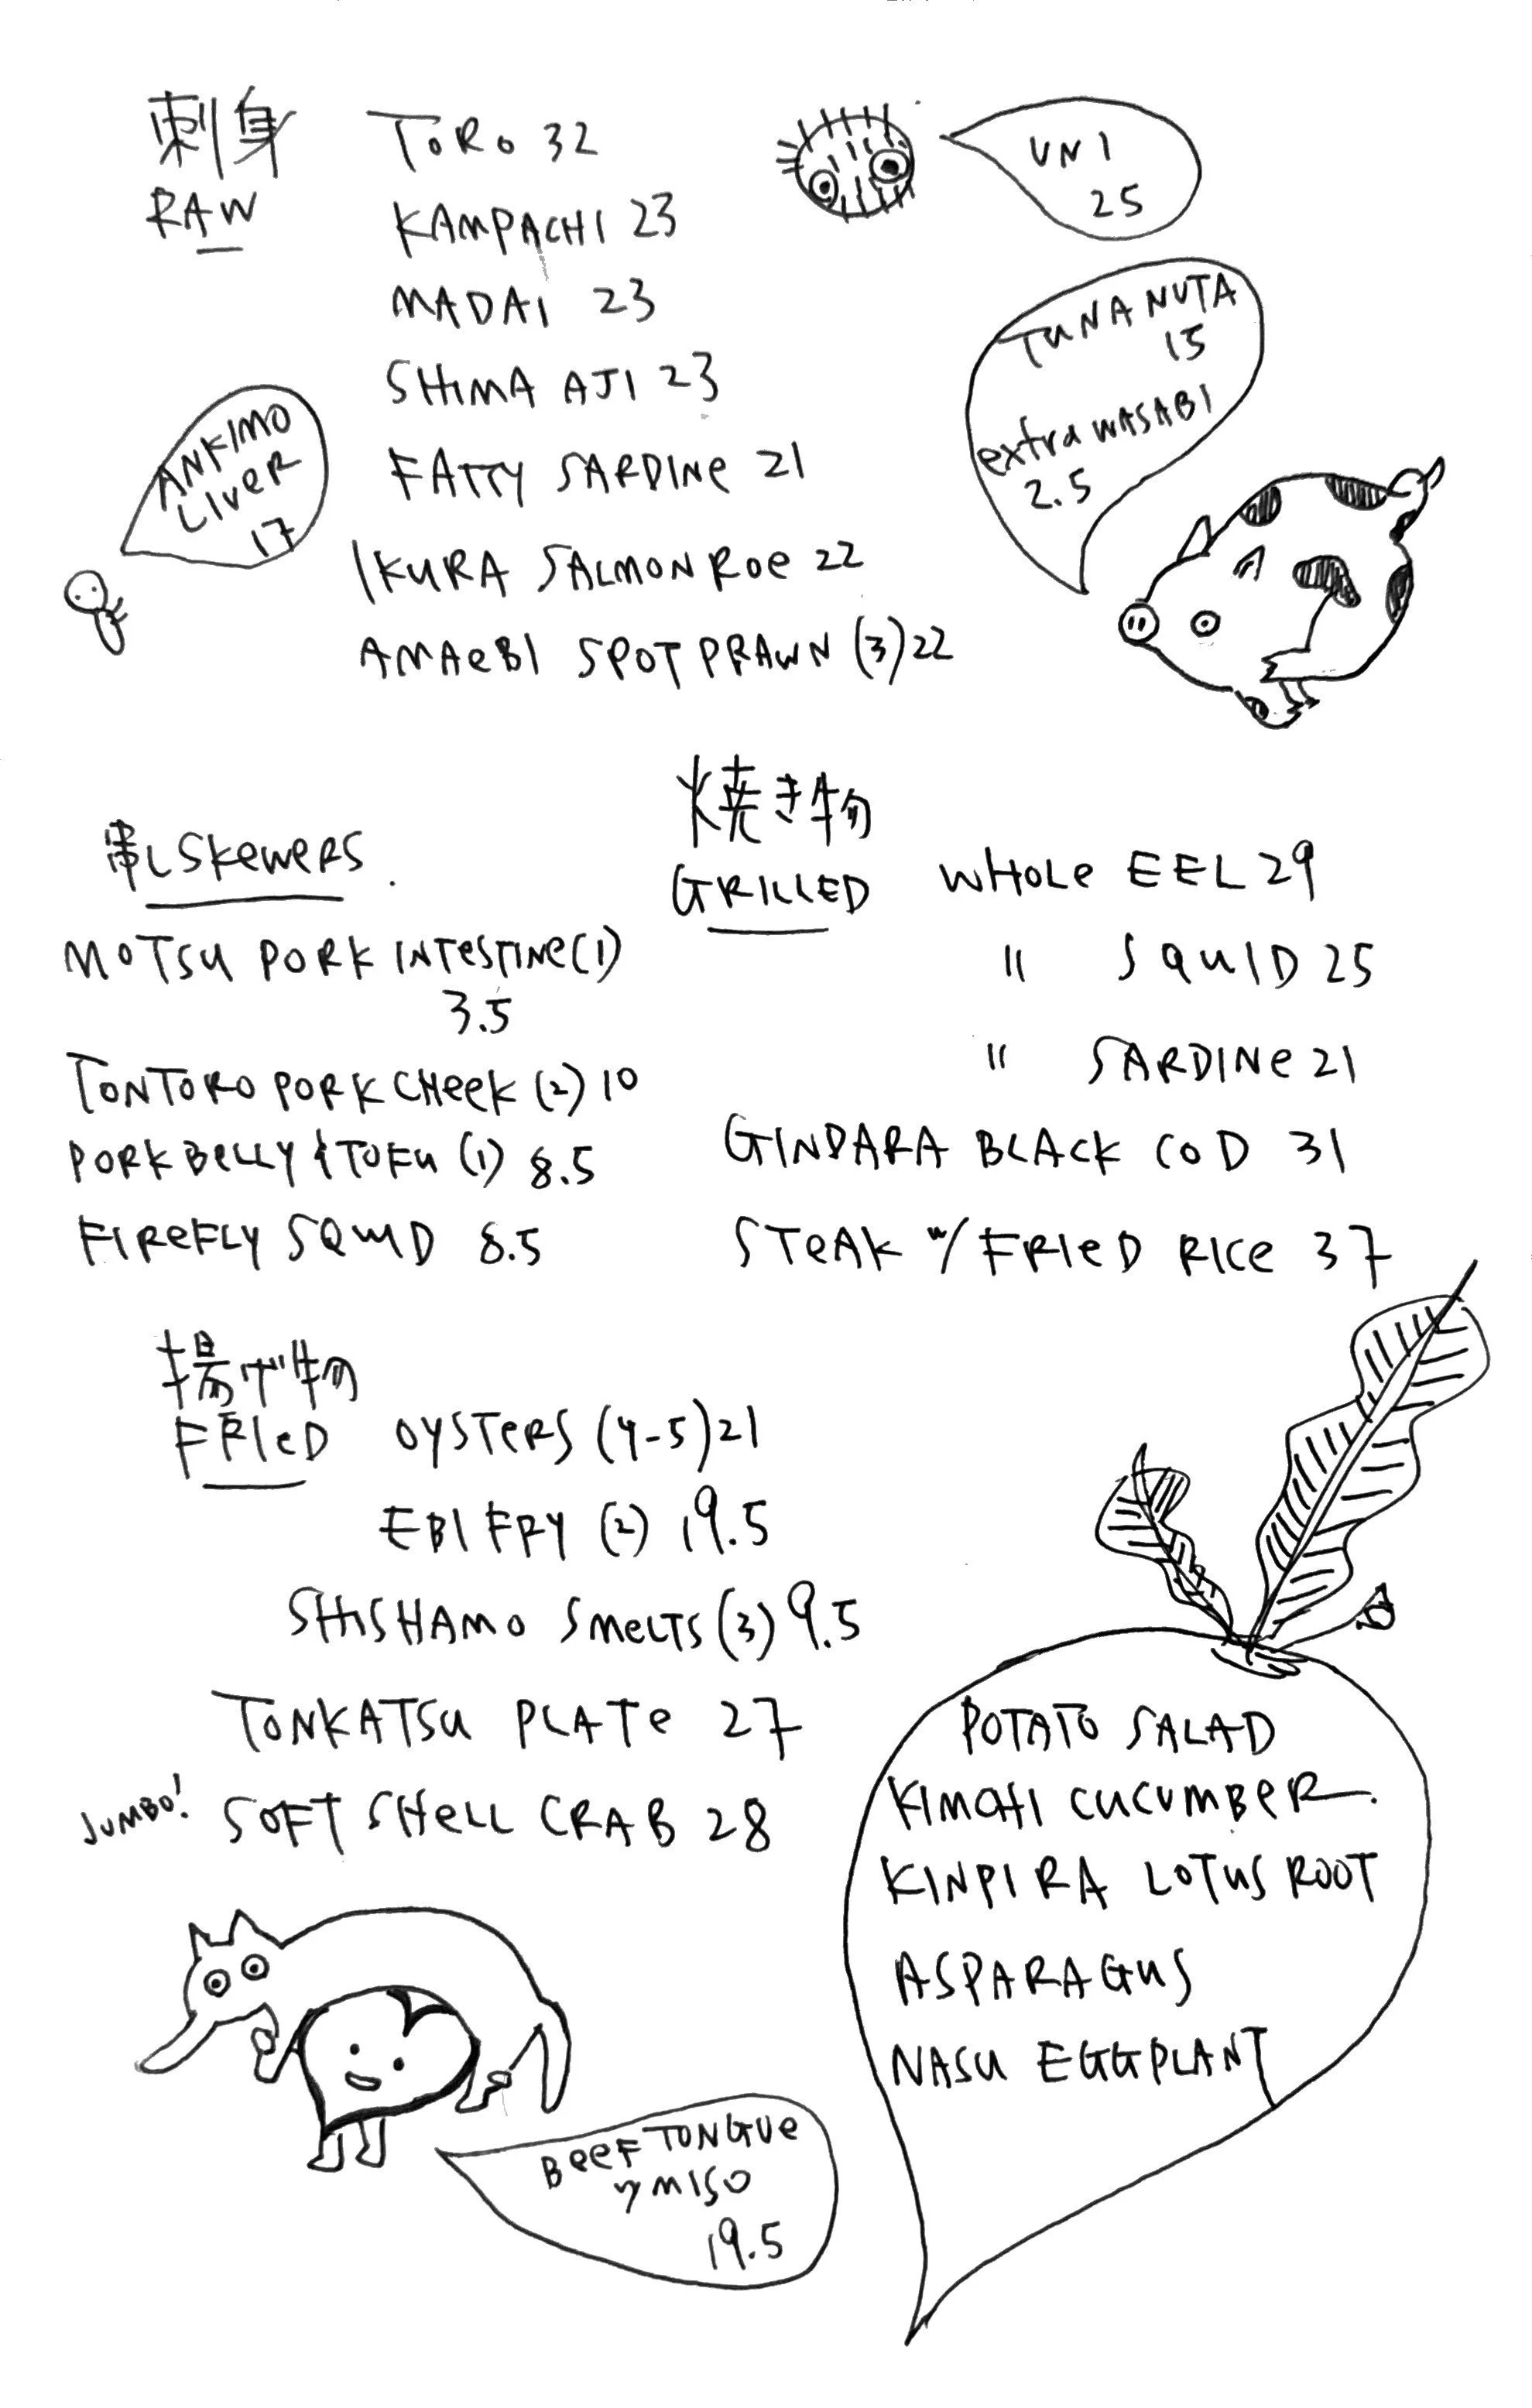 刺身
RAW
TORO 32
KAMPACHI 23
MADAI 23
SHIMA AJI 23
FATTY SARDINE 21
IKURA SALMON ROE 22
AMAEBI SPOT PRAWN (3) 22
UNI
25
TUNA NUTA
15
extra WASABI
2.5
ANKIMO
LIVER
17
串し SKEWERS
MOTSU PORK INTESTINE (1)
3.5
TONTORO PORK CHEEK (2) 10
PORK BELLY & TOFU (1) 8.5
FIREFLY SQUID 8.5
焼き物
GRILLED
WHOLE EEL 29
" SQUID 25
" SARDINE 21
GINDARA BLACK COD 31
STEAK w/ FRIED RICE 37
揚げ物
FRIED
OYSTERS (4-5) 21
EBI FRY (2) 19.5
SHISHAMO SMELTS (3) 9.5
TONKATSU PLATE 27
JUMBO! SOFT SHELL CRAB 28
BEEF TONGUE
w/ MISO
19.5
POTATO SALAD
KIMCHI CUCUMBER
KINPIRA LOTUS ROOT
ASPARAGUS
NASU EGGPLANT